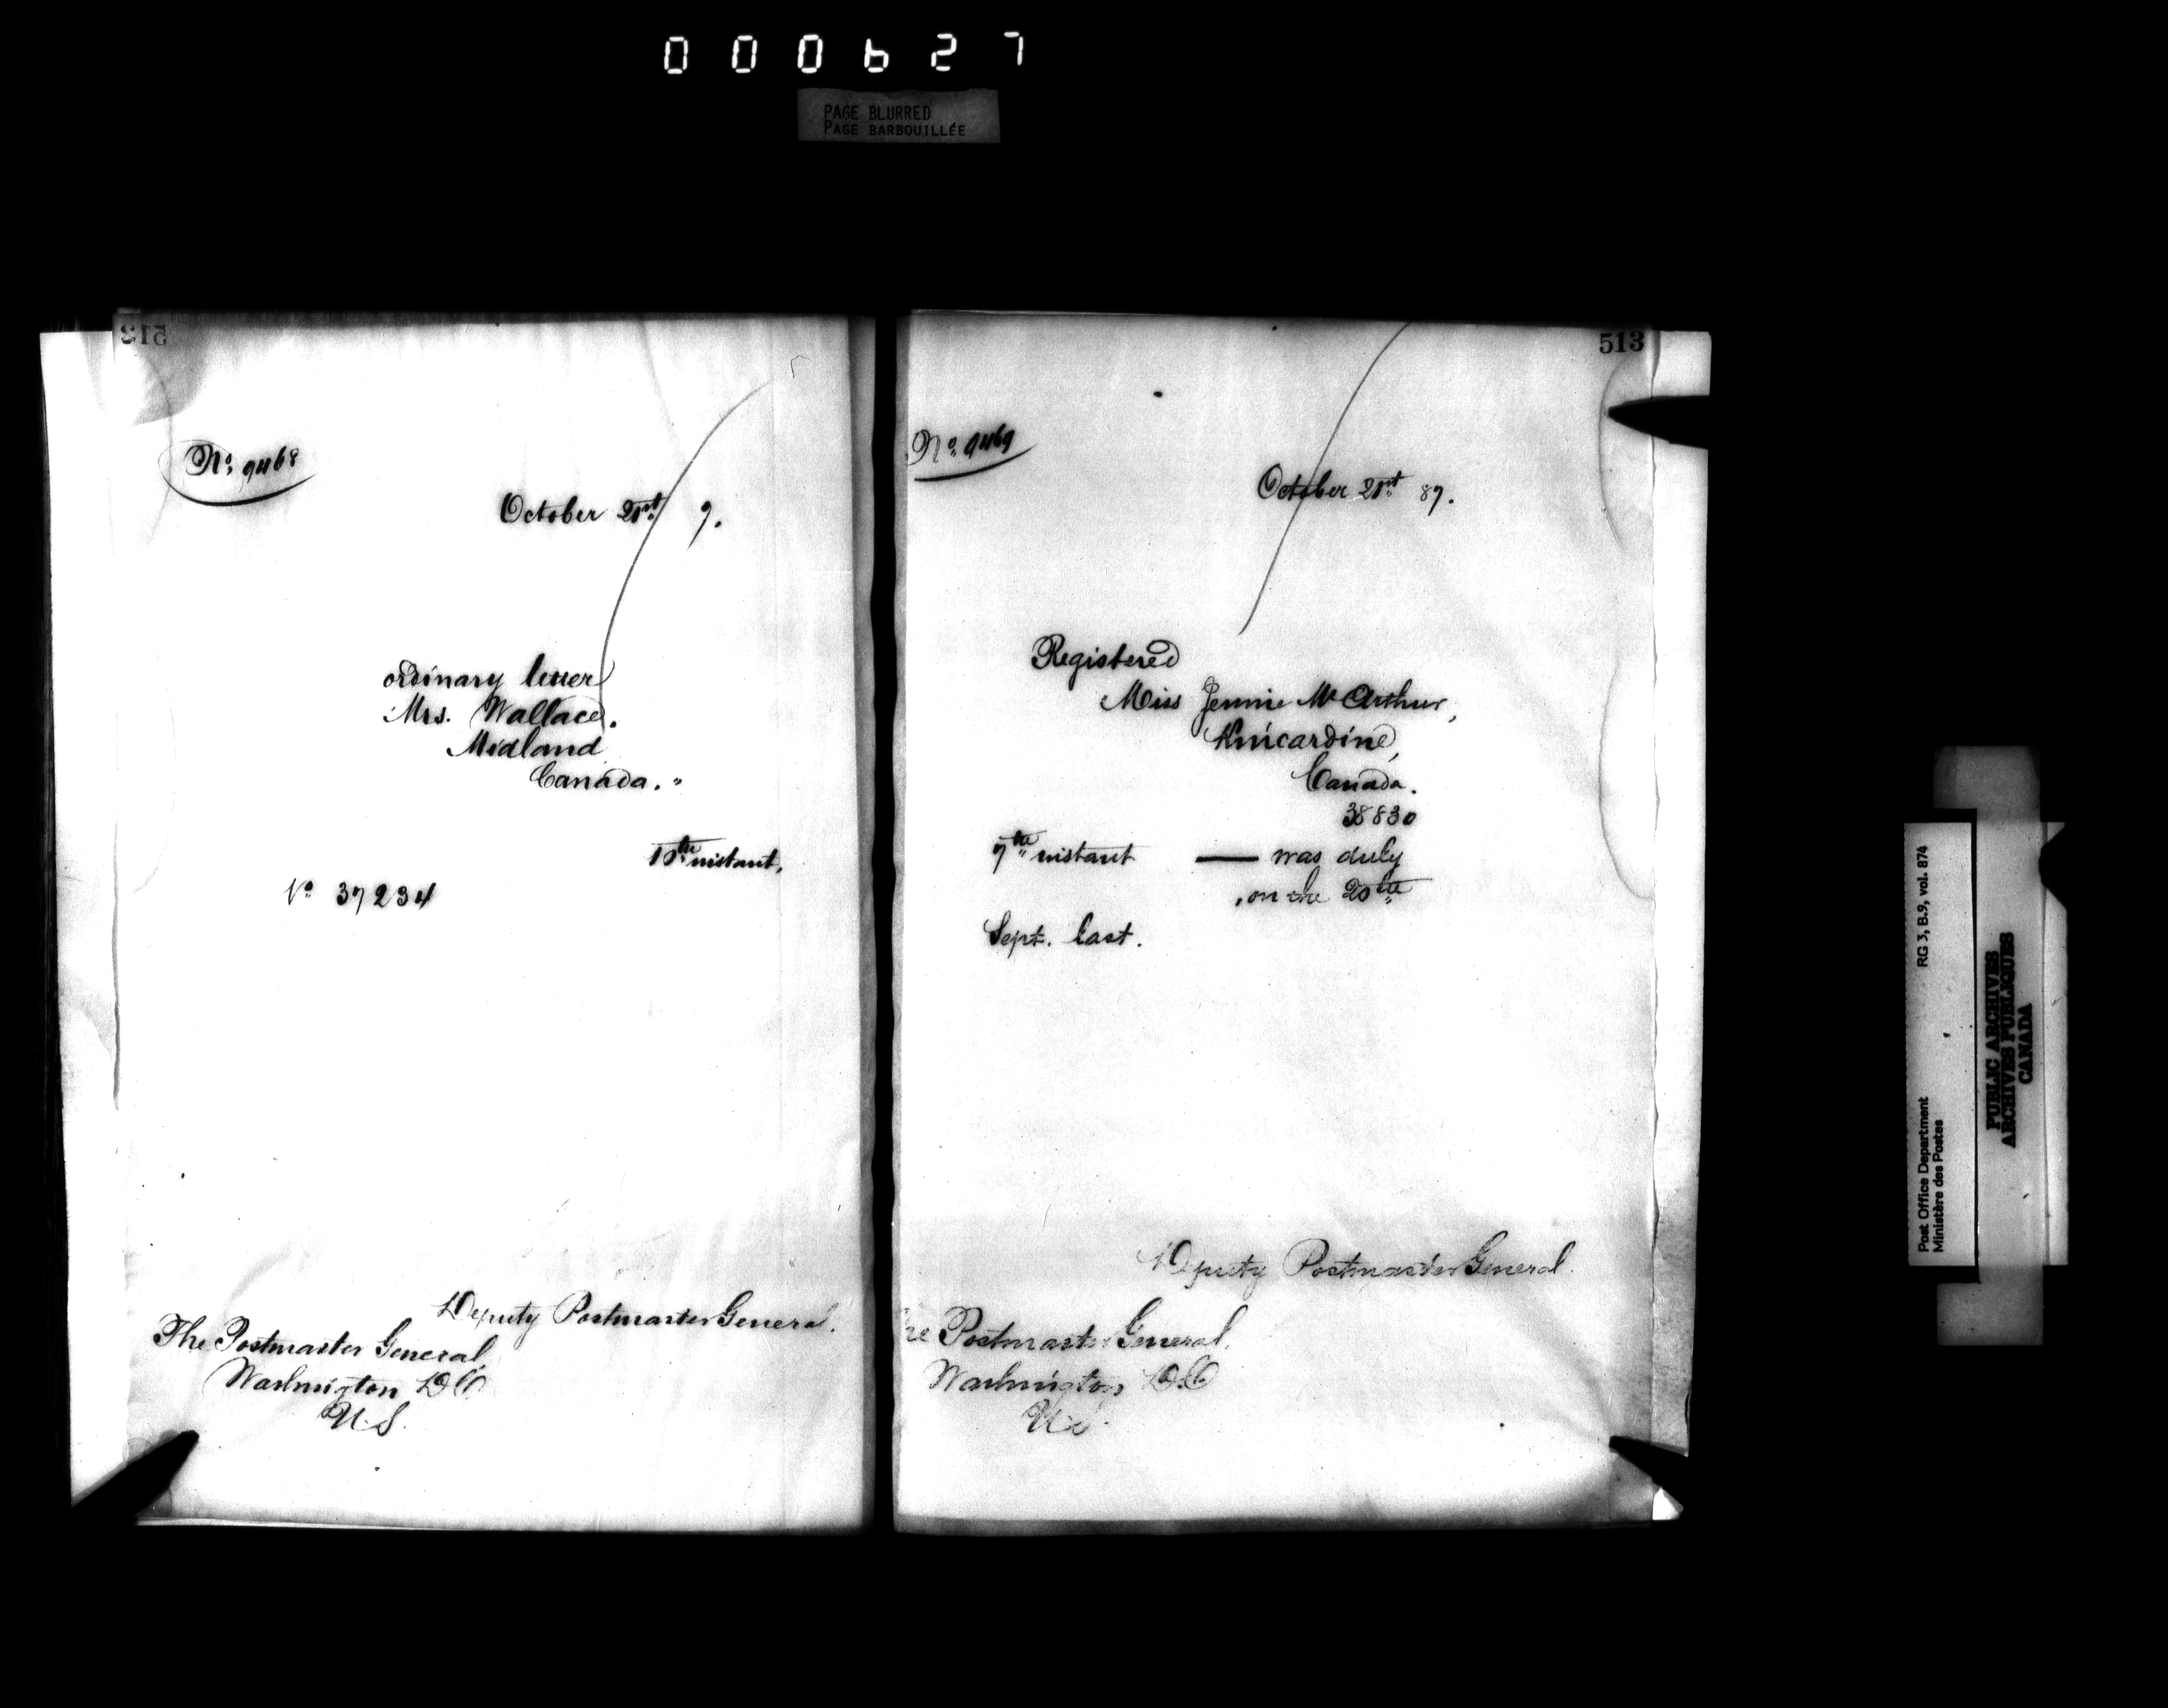 000627
PAGE BLURRED
PAGE BARBOUILLÉE
513
No. 9468
October 21st 7.
ordinary letter
Mrs. Wallace.
Midland
Canada."
instant,
No 37234
Deputy Postmaster General.
The Postmaster General,
Washington DC
U.S.
513
No. 9469
October 21st 87.
Registered
Miss Jennie McArthur,
Kincardine,
Canada.
38830
7th instant — was duly
, on the 20th
Sept. last.
Deputy Postmaster General.
The Postmaster General,
Washington D.C
U.S.
Post Office Department
Ministère des Postes
RG 3, B.9, vol. 874
PUBLIC ARCHIVES
ARCHIVES PUBLIQUES
CANADA